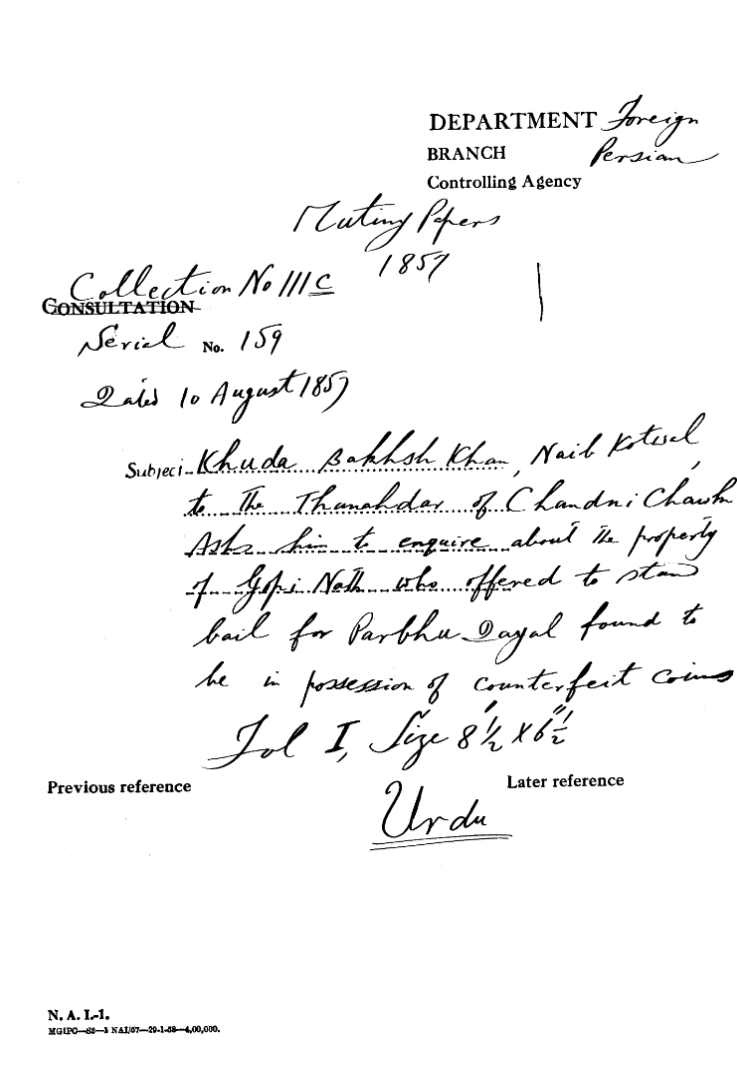 DEPARTMENT Foreign
BRANCH Persian
Controlling Agency
Mutiny Papers
1857
Collection No 111 C
CONSULTATION
Serial No. 159
Dated 10 August 1857
Subject Khuda Bakhsh Khan, Naib Kotwal,
to the Thanahdar of Chandni Chawk
Asks him to enquire about the property
of Gopi Nath who offered to stand
bail for Parbhu Dayal found to
be in possession of counterfeit coins
Fol I, Size 8½" X 6½"
Previous reference Later reference
Urdu
N. A. I.-1.
MGIPC—S2—3 NAI/57—29-1-58—4,00,000.